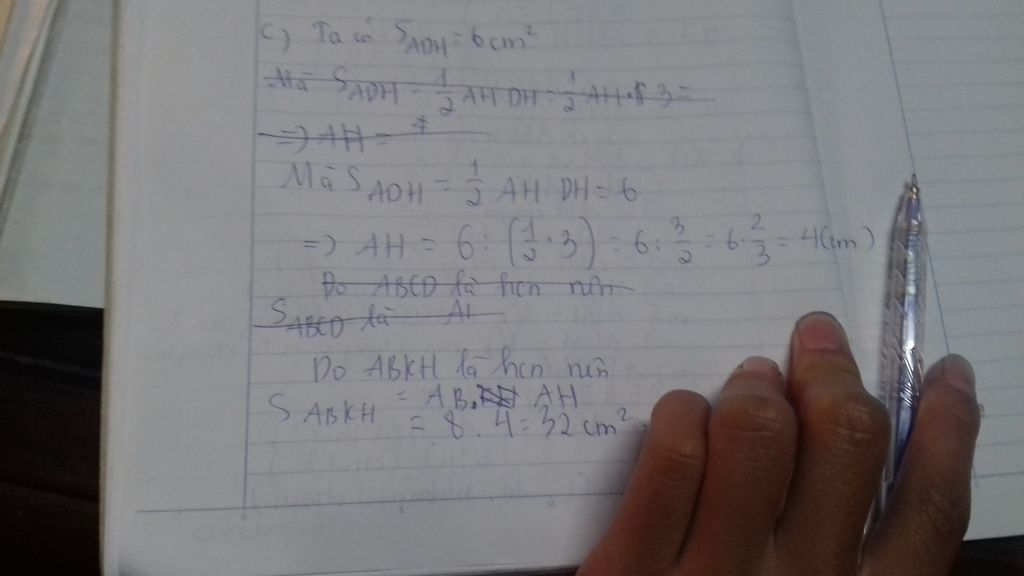 c) Ta có S_ADH = 6 cm²
Mà S_ADH = 1/2 AH DH = 1/2 AH . 3 =
=) AH =
Mà S_ADH = 1/2 AH DH = 6
=) AH = 6 : (1/2 . 3) = 6 : 3/2 = 6 . 2/3 = 4(cm)
Do ABCD là hcn nên
S_ABCD là AH
Do ABKH là hcn nên
S_ABKH = AB. AH
= 8 . 4 = 32 cm².